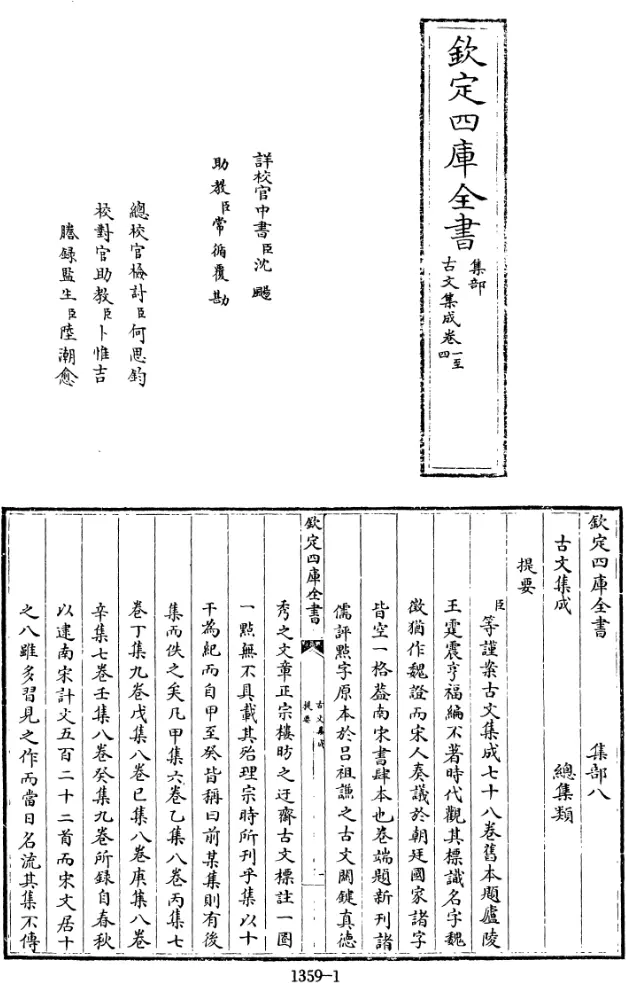 欽定四庫全書
集部
古文集成卷一至四
詳校官中書臣沈颺
助教臣常循覆勘
總校官檢討臣何思鈞
校對官助教臣卜惟吉
謄錄監生臣陸潮愈
欽定四庫全書 集部八
古文集成 總集類
提要
臣等謹案古文集成七十八卷舊本題廬陵
王霆震亨福編不著時代觀其標識名字魏
徵猶作魏證而宋人奏議於朝廷國家諸字
皆空一格蓋南宋書肆本也卷端題新刊諸
儒評點字原本於呂祖謙之古文關鍵真德
欽定四庫全書
古文集成
提要
一
秀之文章正宗樓昉之迂齋古文標註一圈
一點無不具載其殆理宗時所刊乎集以十
干為紀而自甲至癸皆稱曰前某集則有後
集而佚之矣凡甲集六卷乙集八卷丙集七
卷丁集九卷戊集八卷己集八卷庚集八卷
辛集七卷壬集八卷癸集九卷所錄自春秋
以逮南宋計文五百二十二首而宋文居十
之八雖多習見之作而當日名流其集不傳
1359-1